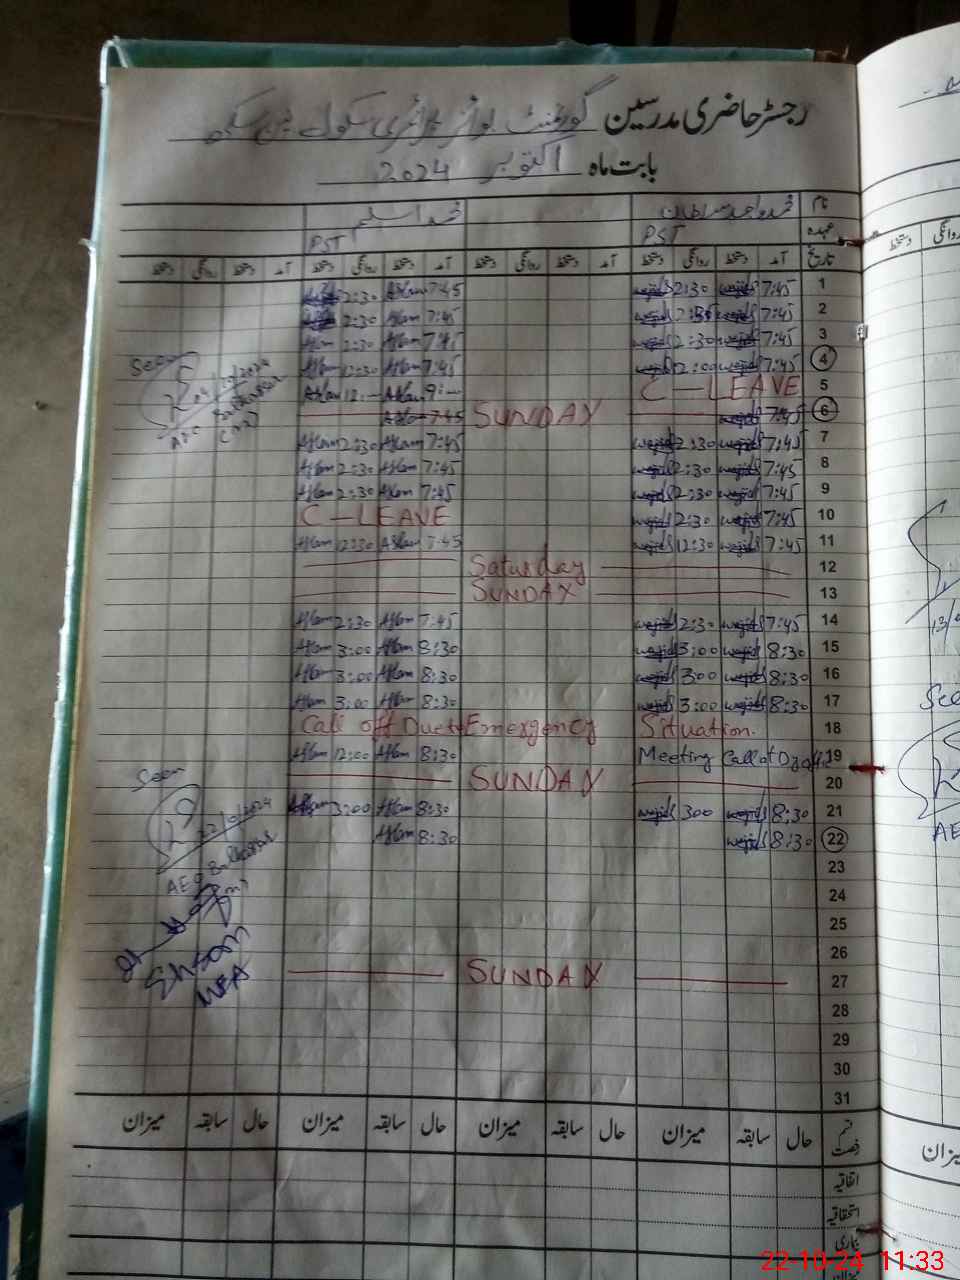 رجسٹر حاضری مدرسین گورنمنٹ بوائز پرائمری سکول
بابت ماہ اکتوبر 2024
نام محمد واجد سلطان محمد اسلم
عہدہ PST PST
تاریخ آمد دستخط روانگی دستخط آمد دستخط روانگی دستخط آمد دستخط روانگی دستخط آمد دستخط روانگی دستخط
1 7:45 wajid 2:30 wajid 7:45 Aslam 2:30
2 7:45 wajid 2:30 wajid 7:45 Aslam 2:30
3 7:45 wajid 2:30 wajid 7:45 Aslam 2:30 Aslam
4 7:45 wajid 12:00 wajid 7:45 Aslam 12:30 Aslam
5 C - LEAVE 9:— Aslam 12:— Aslam
6 7:45 wajid SUNDAY 7:45 Aslam
7 7:45 wajid 2:30 wajid 7:45 Aslam 2:30 Aslam
8 7:45 wajid 2:30 wajid 7:45 Aslam 2:30 Aslam
9 7:45 wajid 2:30 wajid 7:45 Aslam 2:30 Aslam
10 7:45 wajid 2:30 wajid C - LEAVE
11 7:45 wajid 12:30 wajid 7:45 Aslam 12:30 Aslam
12 Saturday
13 SUNDAY
14 7:45 wajid 2:30 wajid 7:45 Aslam 2:30 Aslam
15 8:30 wajid 3:00 wajid 8:30 Aslam 3:00 Aslam
16 8:30 wajid 3:00 wajid 8:30 Aslam 3:00 Aslam
17 8:30 wajid 3:00 wajid 8:30 Aslam 3:00 Aslam
18 Call off Due to Emergency Situation.
19 Meeting Call at D 8:30 Aslam 12:00 Aslam
20 SUNDAY
21 8:30 wajid 3:00 wajid 8:30 Aslam 3:00 Aslam
22 8:30 wajid 8:30 Aslam
23
24
25
26
27 SUNDAY
28
29
30
31
Seen
AEO
Seen
22/10/2024
AEO
قسم رخصت حال سابقہ میزان حال سابقہ میزان حال سابقہ میزان حال سابقہ میزان
اتفاقیہ
استحقاقیہ
بیماری
میزان
دستخط روانگی
میزان
22-10-24 11:33